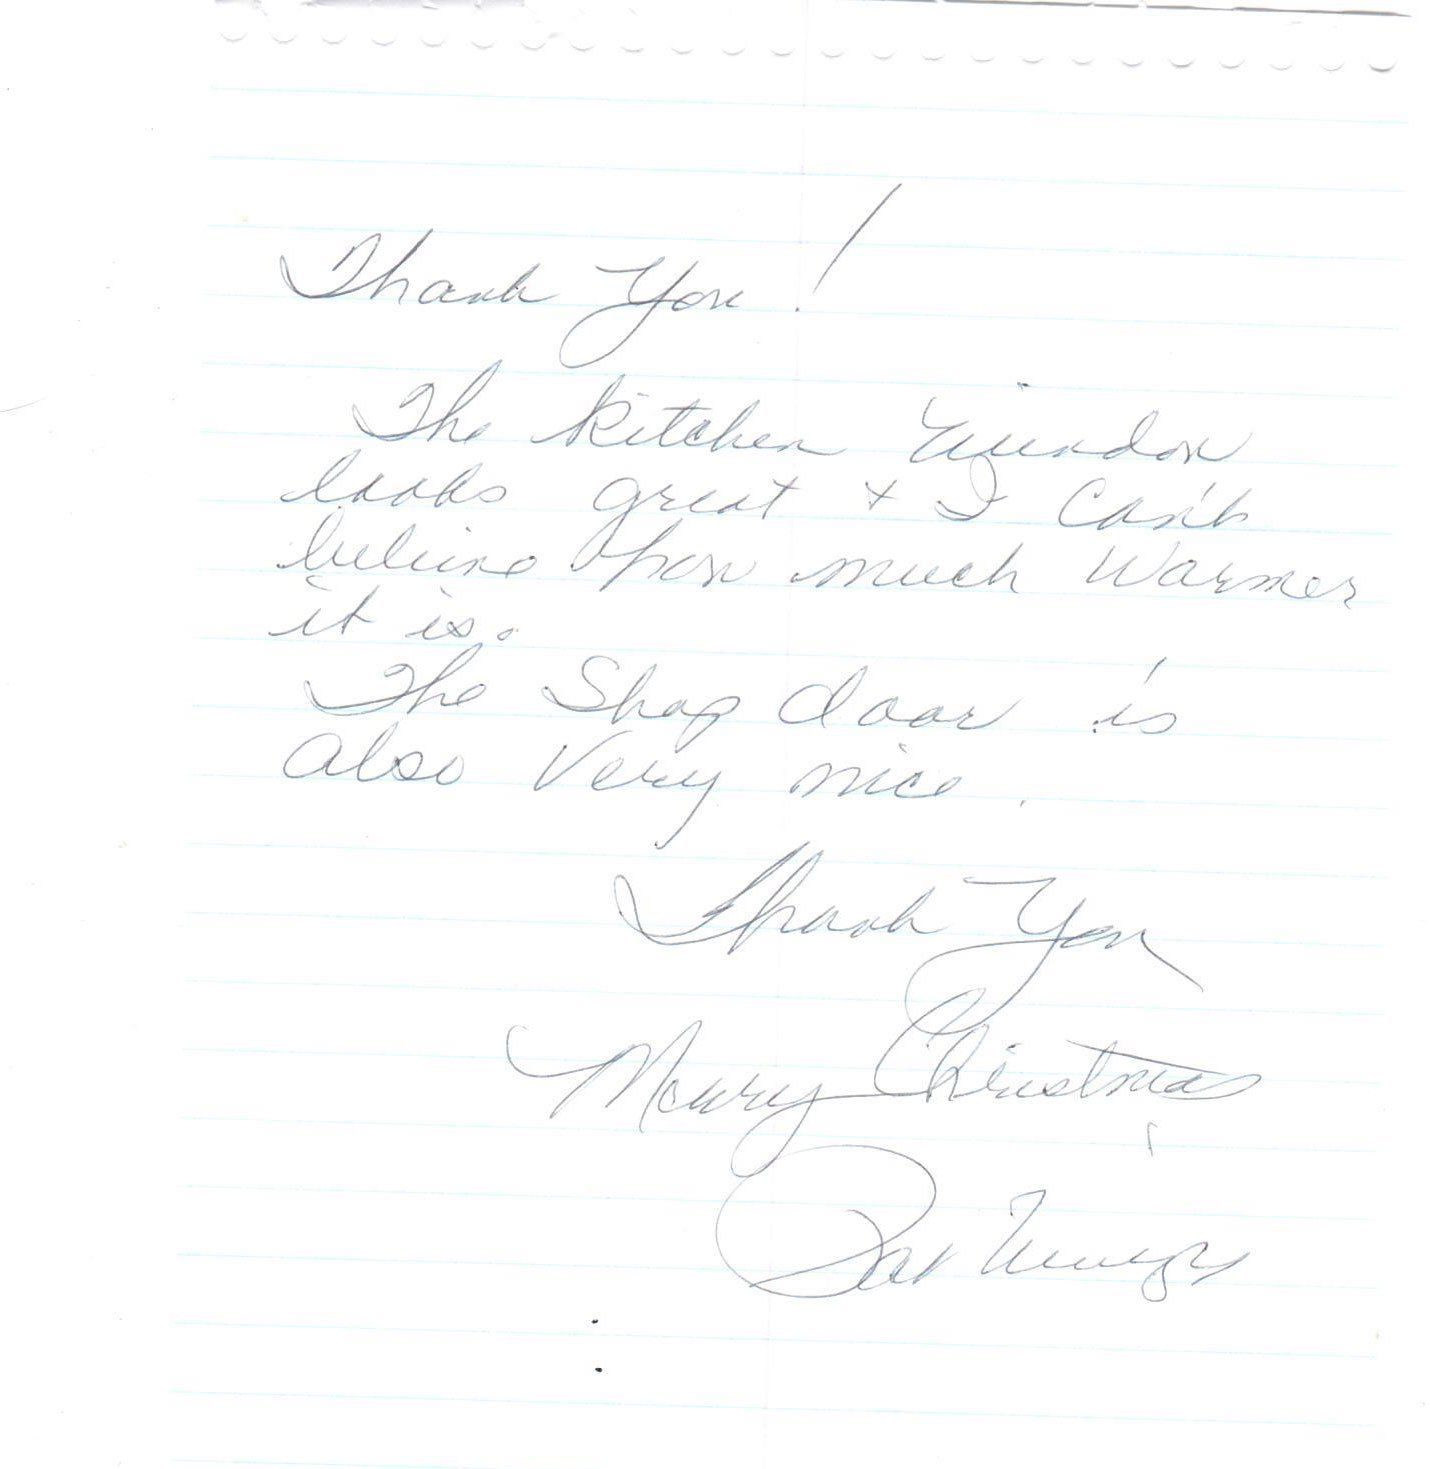 Thank You!
The kitchen window
looks great + I can't
believe how much warmer
it is.
The Shop door is
also very nice.
Thank You
Merry Christmas
Pat